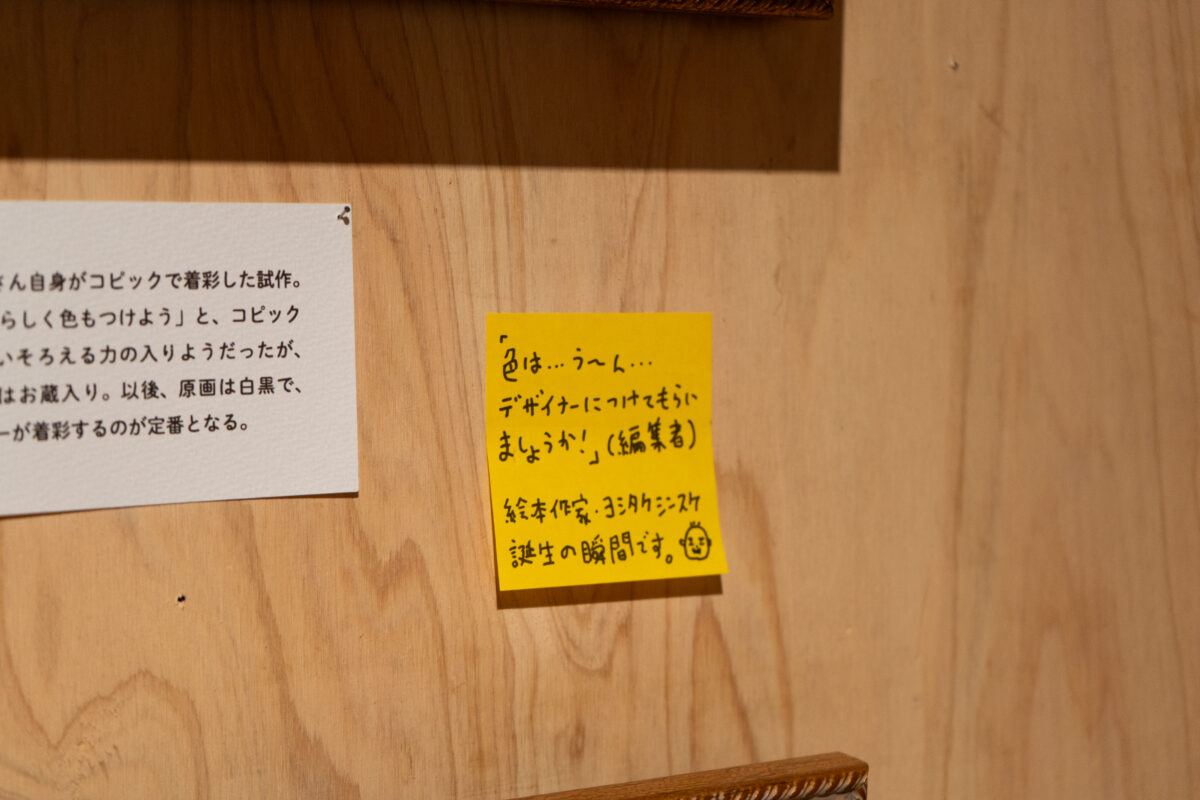 さん自身がコピックで着彩した試作。
らしく色もつけよう」と、コピック
いそろえる力の入りようだったが、
はお蔵入り。以後、原画は白黒で、
ーが着彩するのが定番となる。
「色は…う〜ん…
デザイナーにつけてもらい
ましょうか!」(編集者)
絵本作家・ヨシタケシンスケ
誕生の瞬間です。